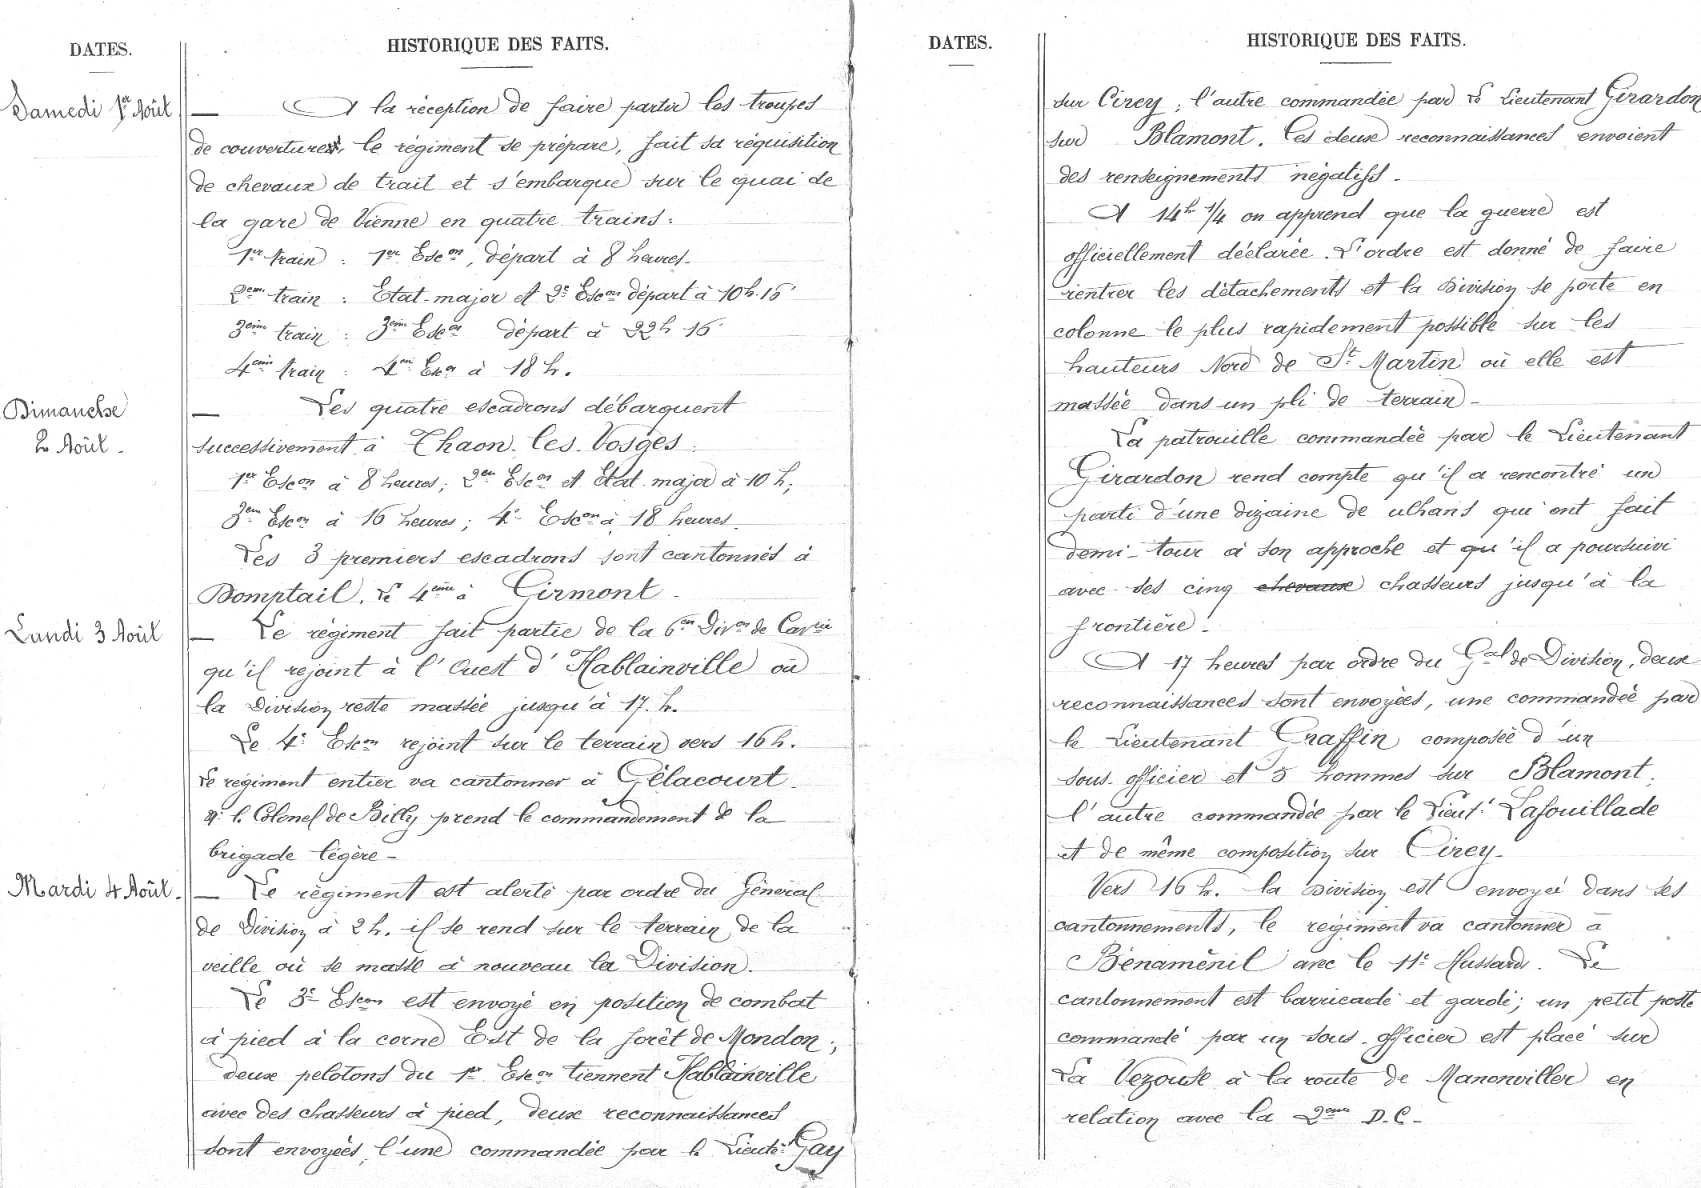 DATES.
HISTORIQUE DES FAITS.
Samedi 1er Août
— A la réception de faire partir les troupes
de couverture, le régiment se prépare, fait sa réquisition
de chevaux de trait et s'embarque sur le quai de
la gare de Vienne en quatre trains :
1er train : 1er Escon, départ à 8 heures.
2em train : Etat-major et 2e Escon départ à 10h.15'
3eme train : 3eme Escon départ à 22h 15'
4eme train : 4em Escon à 18 h.
Dimanche
2 Août.
— Les quatre escadrons débarquent
successivement à Thaon. les. Vosges :
1er Escon à 8 heures ; 2em Escon et Etat. major à 10 h ;
3em Escon à 16 heures ; 4e Escon à 18 heures.
Les 3 premiers escadrons sont cantonnés à
Domptail. Le 4eme à Girmont.
Lundi 3 Août
— Le régiment fait partie de la 6em Divon de Cavrie
qu'il rejoint à l'Ouest d'Hablainville où
la Division reste massée jusqu'à 17. h.
Le 4e Escon rejoint sur le terrain vers 16 h.
Le régiment entier va cantonner à Gélacourt.
Mr. le Colonel de Billy prend le commandement de la
brigade légère –
Mardi 4 Août.
— Le régiment est alerté par ordre du Général
de Division à 2 h. il se rend sur le terrain de la
veille où se masse à nouveau la Division.
Le 3e Escon est envoyé en position de combat
à pied à la corne Est de la forêt de Mondon ;
deux pelotons du 1er Escon tiennent Hablainville
avec des chasseurs à pied, deux reconnaissances
sont envoyées, l'une commandée par le Lieutt Gay
DATES.
HISTORIQUE DES FAITS.
sur Cirey ; l'autre commandée par le Lieutenant Girardon
sur Blamont. Les deux reconnaissances envoient
des renseignements négatifs.
A 14h 1/4 on apprend que la guerre est
officiellement déclarée. L'ordre est donné de faire
rentrer les détachements et la Division se porte en
colonne le plus rapidement possible sur les
hauteurs Nord de St. Martin où elle est
massée dans un pli de terrain –
La patrouille commandée par le Lieutenant
Girardon rend compte qu'il a rencontré un
parti d'une dizaine de ulhans qui ont fait
demi-tour à son approche et qu'il a poursuivi
avec ses cinq chevaux chasseurs jusqu'à la
frontière.
A 17 heures par ordre du Gal de Division, deux
reconnaissances sont envoyées, une commandée par
le Lieutenant Graffin composée d'un
sous-officier et 5 hommes sur Blamont.
l'autre commandée par le Lieutt Lafouillade
et de même composition sur Cirey –
Vers 16 h. la Division est envoyée dans ses
cantonnements, le régiment va cantonner à
Bénaménil avec le 11e Hussards. Le
cantonnement est barricadé et gardé ; un petit poste
commandé par un sous-officier est placé sur
La Vezouse à la route de Manonviller en
relation avec la 2eme D.C –